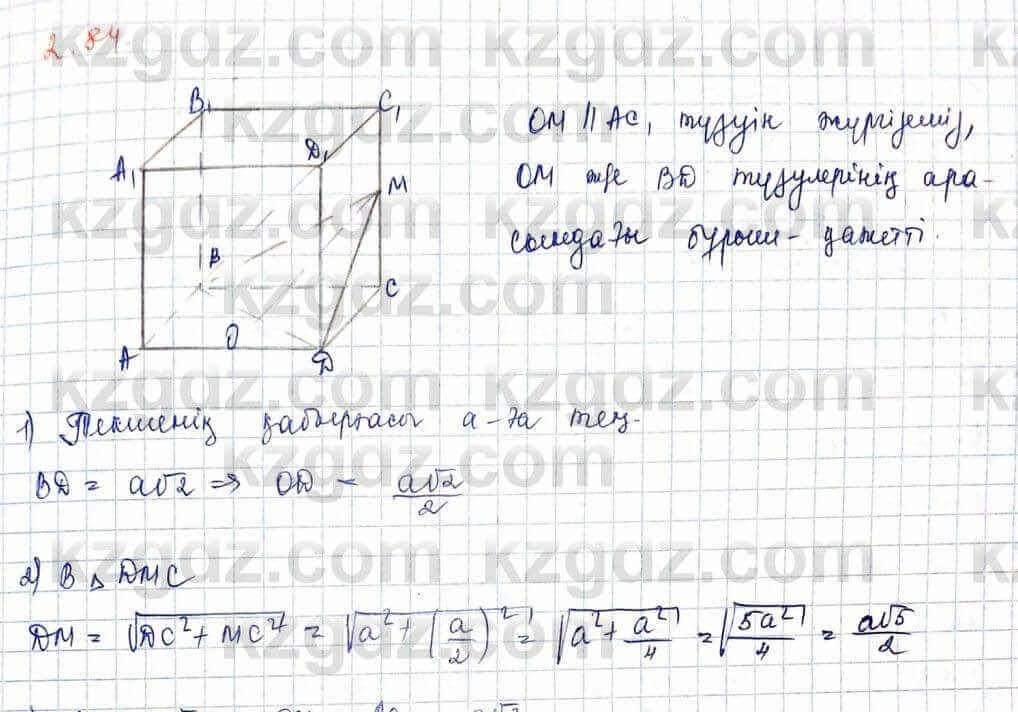 2.84
kzgdz.com
B₁ C₁
A₁ D₁
M
B
C
O
A D
OM || AC, түзуін жүргіземіз,
OM және BD түзулерінің ара-
сындағы бұрыш - қажетті.
1) Текшенің қабырғасы a-ға тең.
BD = a√2 => OD - a√2/2
2) В △ DMC
DM = √(DC² + MC²) = √(a² + (a/2)²) = √(a² + a²/4) = √(5a²/4) = a√5/2